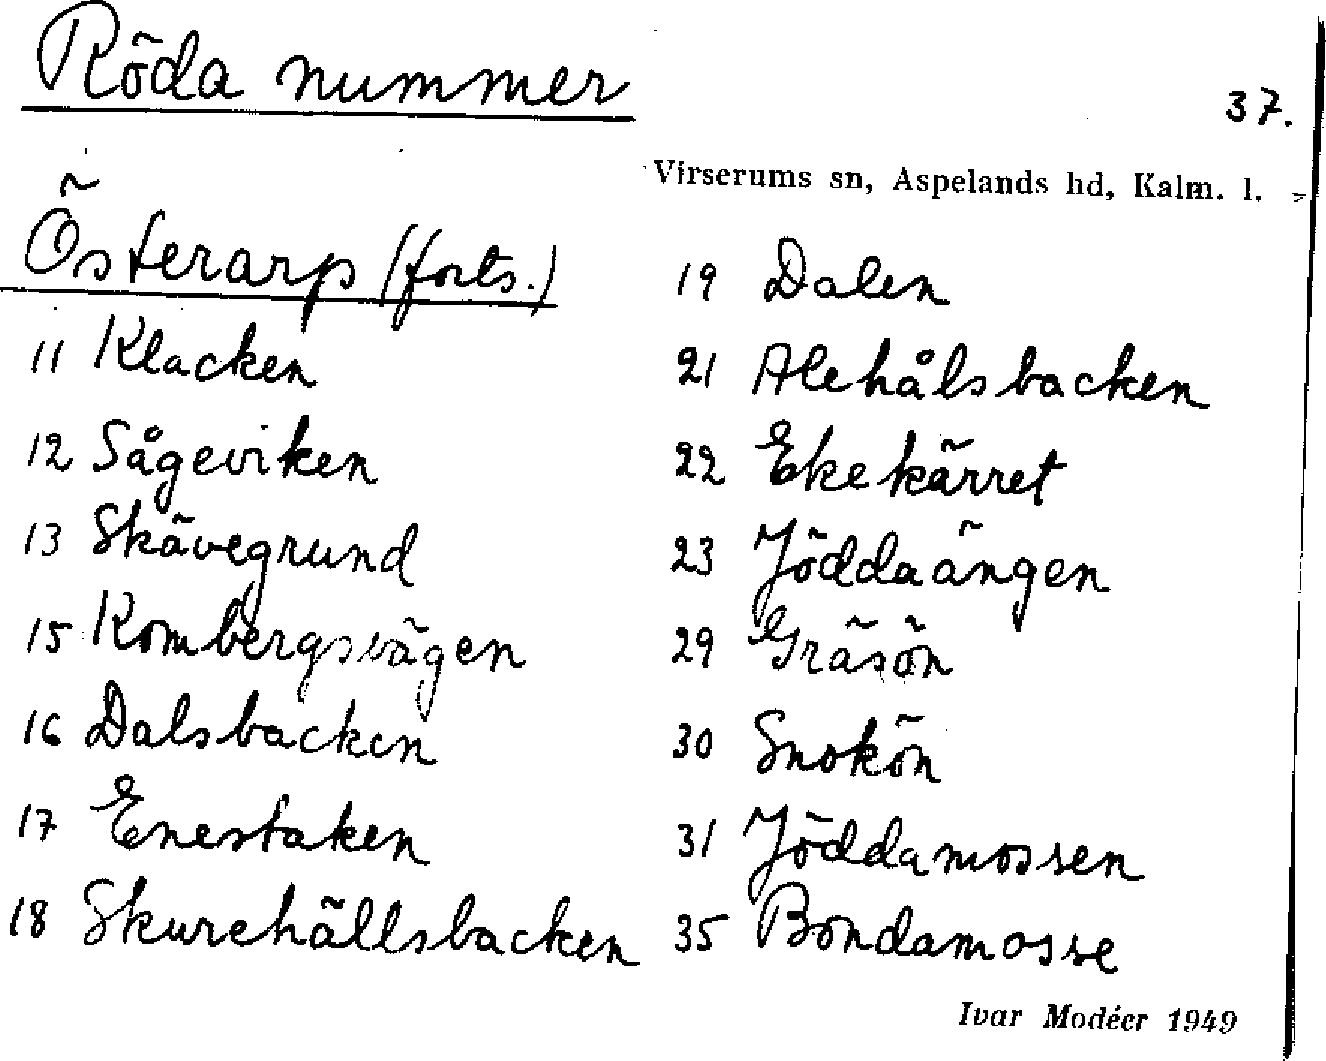 Röda nummer
37.
Virserums sn, Aspelands hd, Kalm. l.
Österarp (forts.)
11 Klacken
12 Sågeviken
13 Skävegrund
15 Rombergsvägen
16 Dalsbacken
17 Enestaken
18 Skurehällsbacken
19 Dalen
21 Alehålsbacken
22 Ekekärret
23 Jöddaängen
29 Gräsön
30 Snokön
31 Jöddamossen
35 Bondamosse
Ivar Modéer 1949